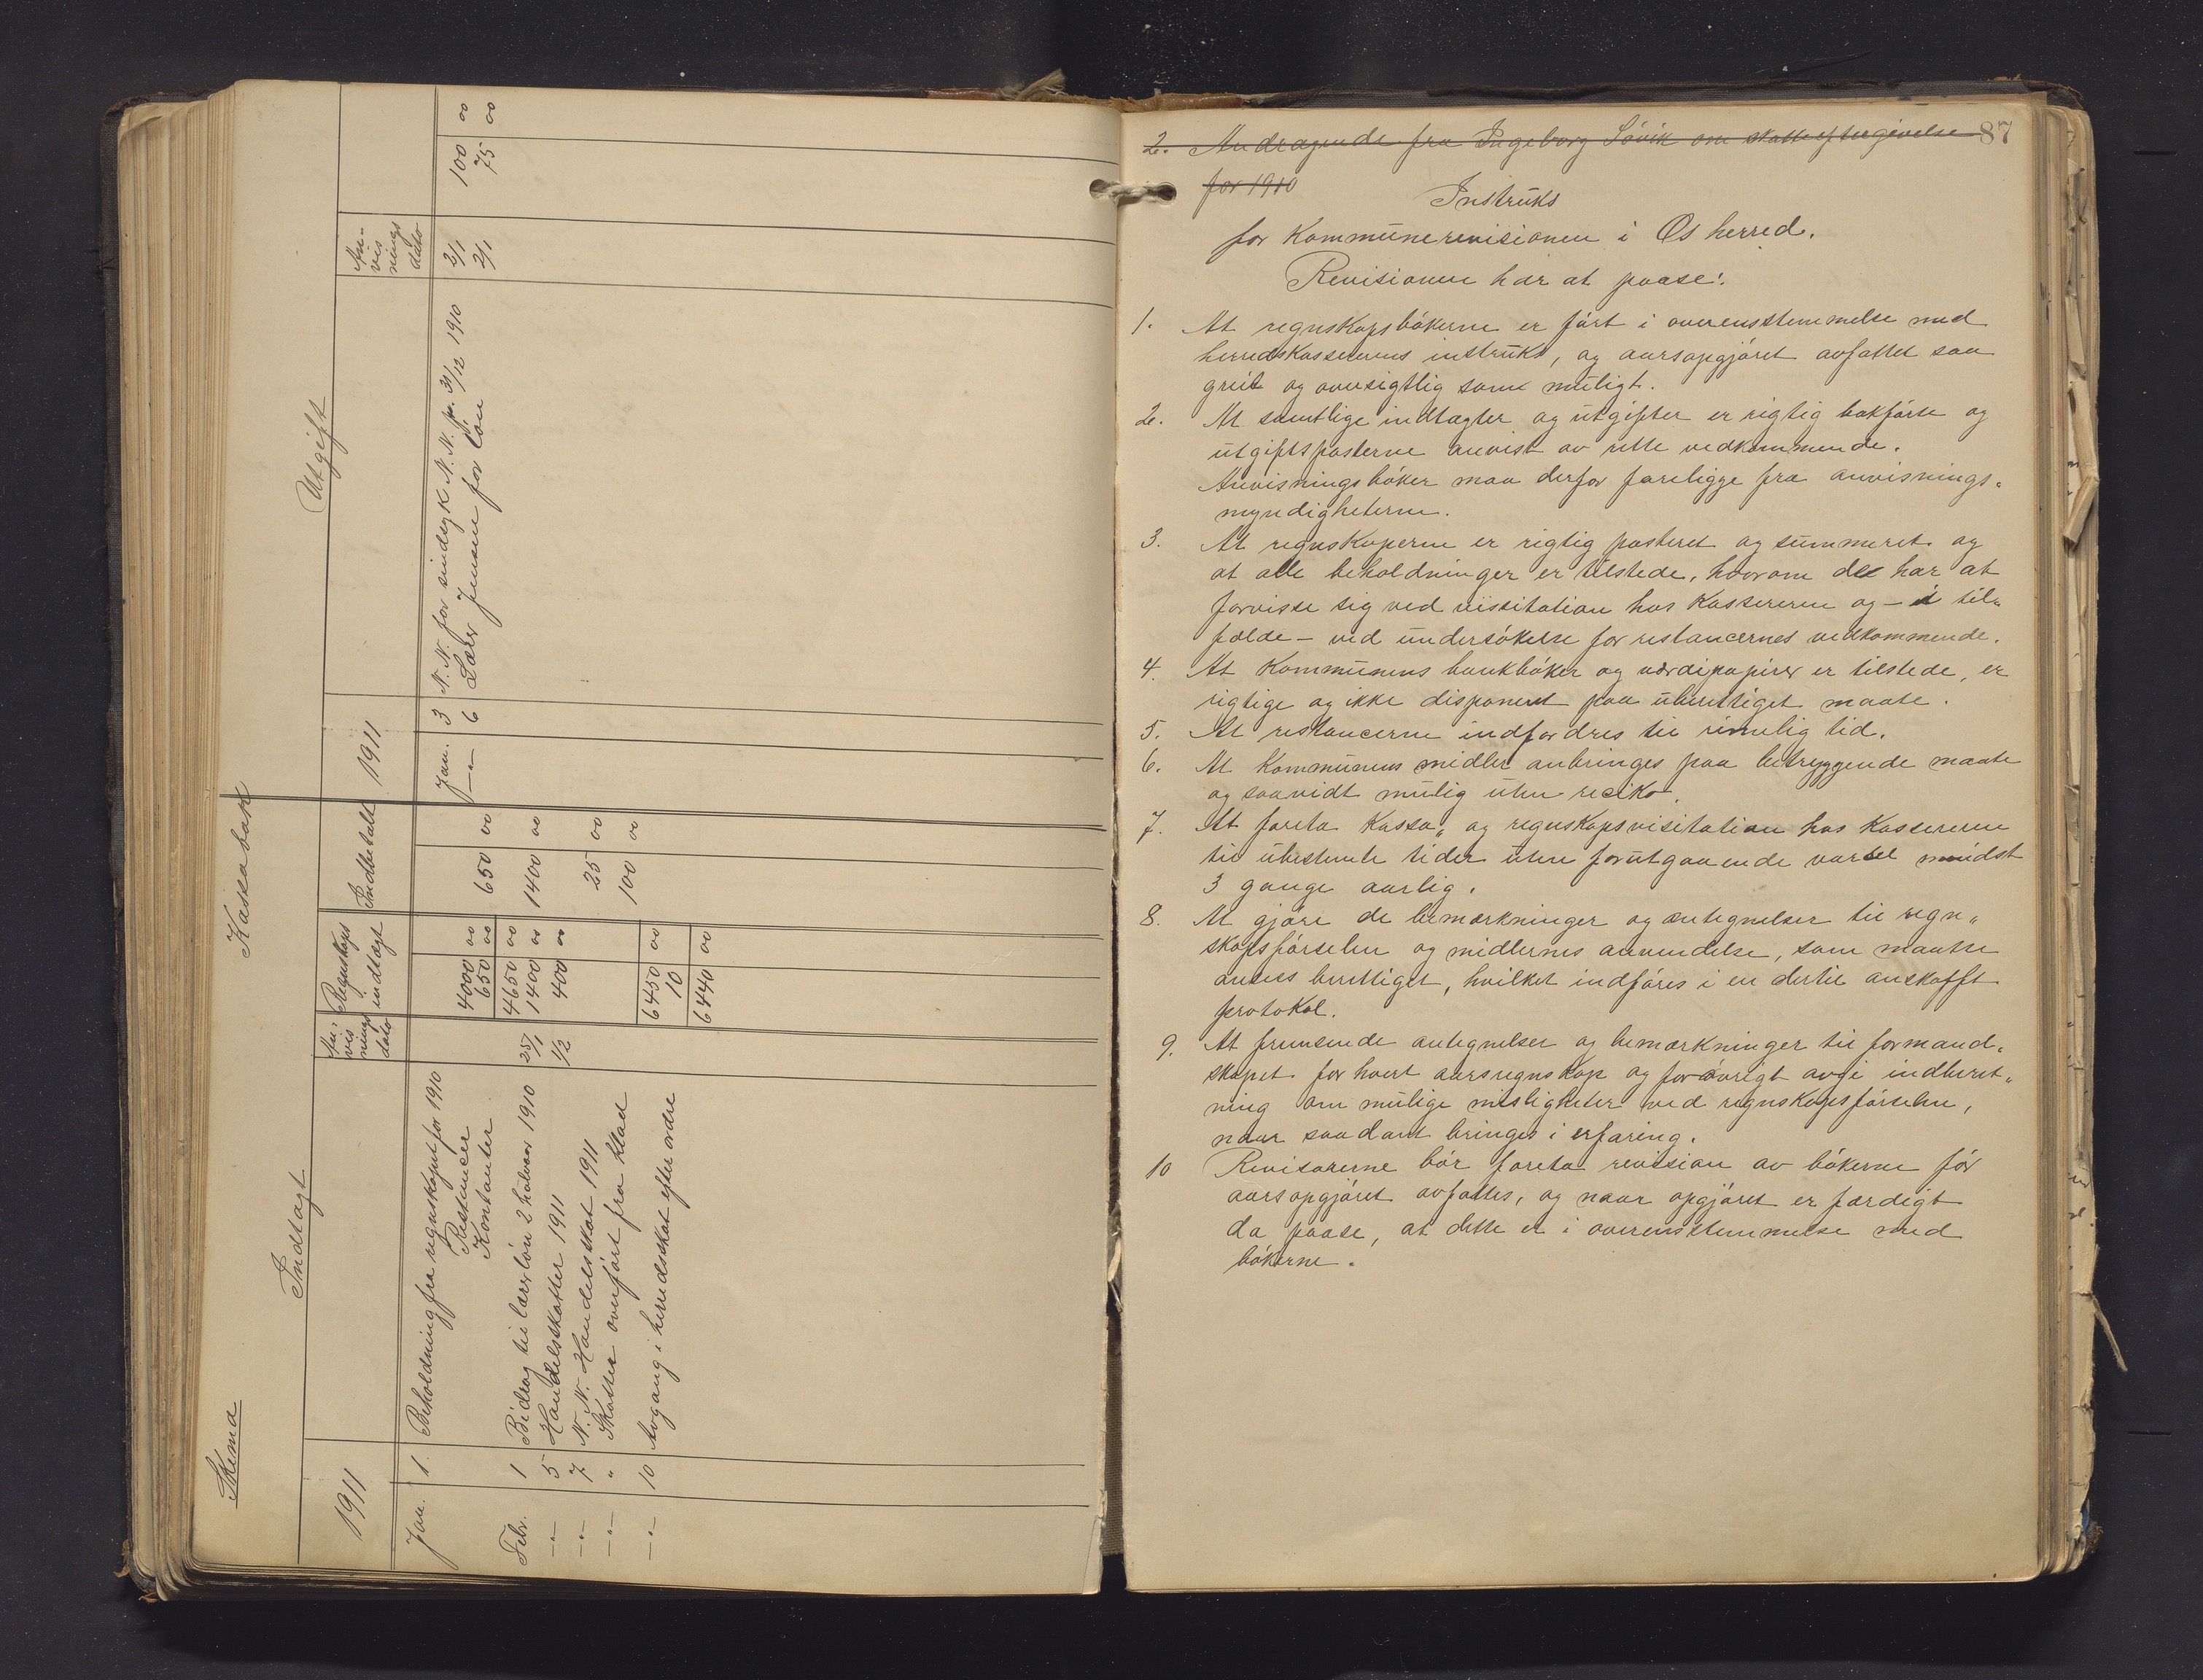 Skema
Kassabok
Indtægt
1911
An-
vis
nings
dato
Regnskaps
indtægt
Indbetalt
Jan. 1. Beholdning fra regnskapet for 1910
Restancer 4000 00
Kontanter 650 00 650 00
4650 00
Febr. 1 Bidrag til lærerløn 2 halvaar 1910 25/1 1400 00 1400 00
—"— 5 Handelsskatter 1911 1/2 400 00
—"— 7 N. N. Handelsskat 1911 25 00
—"— " Skatter overført fra klad 100 00
6450 00
—"— 10 Avgang i herredsskat efter mære 10
6440 00
Utgift
1911
An-
vis
nings
dato
Jan. 3 N. N. for sindsyk N. N. pr. 31/12 1910 2/1 100 00
—"— 6 Lærer Jensen for løn 2/1 75 00
87
2. Andragende fra Ingeborg Søvik om skatteeftergivelse
for 1910
Instruks
for Kommunerevisionen i Os herred.
Revisionen har at paase:
1. At regnskapsbøkerne er ført i overensstemmelse med
herredskassererens instruks, og aarsopgjøret avfattet saa
greit og oversigtlig some muligt.
2. At samtlige indtægter og utgifter er rigtig bokførte og
utgiftsposterne anvist av rette vedkommende.
Anvisningsbøker maa derfor foreligge fra anvisnings-
myndigheterne.
3. At regnskaperne er rigtig posteret og summeret og
at alle beholdninger er tilstede, hvorom det har at
forvisse sig ved vissitation hos Kassereren og – i til-
fælde – ved undersøkelse for restancernes vedkommende.
4. At Kommunens bankbøker og værdipapirer er tilstede, er
rigtige og ikke disponert paa uberettiget maate.
5. At restancerne indfordres til rimelig tid.
6. At Kommunens midler anbringes paa betryggende maate
og saavidt mulig uten reciko.
7. At foreta Kassa- og regnskapsvisitation hos Kassereren
til ubestemte tider uten forutgaaende varsel mindst
3 gange aarlig.
8. At gjøre de bemærkninger og antegnelser til regn-
skapsførselen og midlernes anvendelse, som maatte
ansees berettiget, hvilket indføres i en dertil anskafft
protokol.
9. At fremsende antegnelser og bemærkninger til formand-
skapet for hvert aarsregnskap og forøvrigt avgi indberet-
ning om mulige misligheter ved regnskapsførselen,
naar saadant bringes i erfaring.
10 Revisorerne bør foreta revision av bøkerne før
aarsopgjøret avfattes, og naar opgjøret er færdigt
da paase, at dette er i overensstemmelse med
bøkerne.